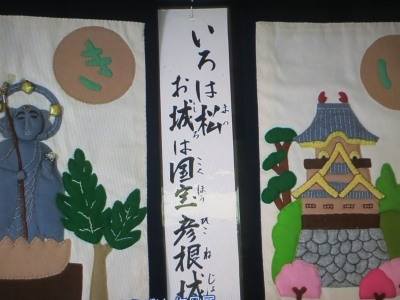 き
いろは松
まつ
お城は国宝彦根城
しろ こくほう ひこねじょ
い